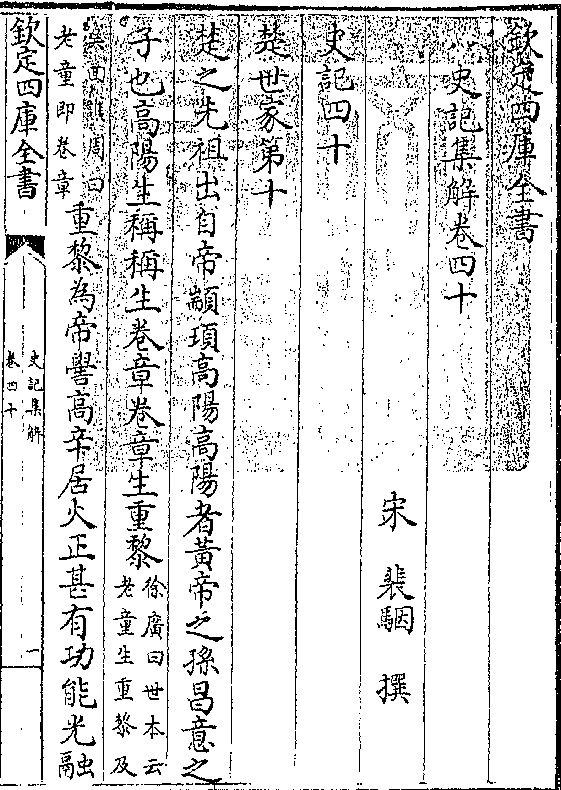 欽定四庫全書
史記集解卷四十
宋 裴駰 撰
史記四十
楚世家第十
楚之先祖出自帝顓頊高陽高陽者黃帝之孫昌意之
子也高陽生稱稱生卷章卷章生重黎徐廣曰世本云
老童生重黎及
吳回譙周曰
老童即卷章
重黎為帝嚳高辛居火正甚有功能光融
欽定四庫全書
史記集解
卷四十
一